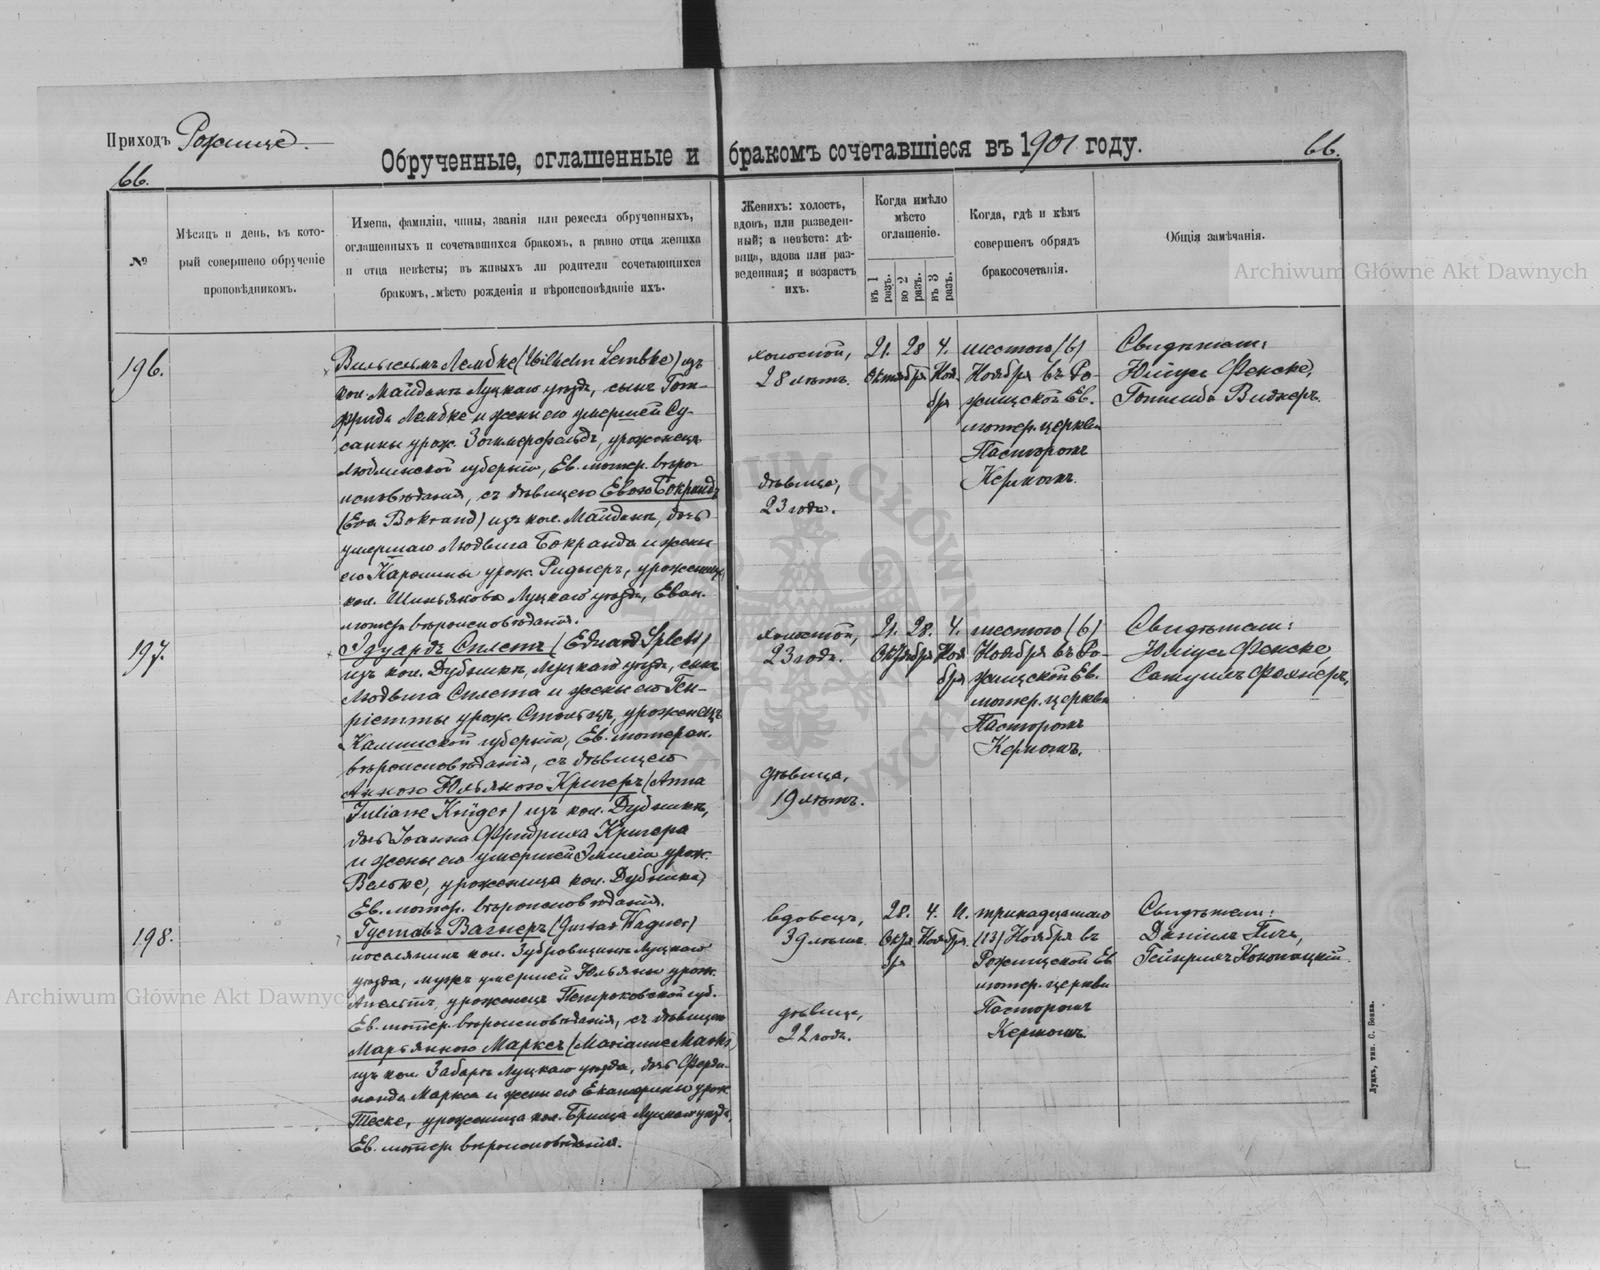 Приходъ Рожище.
Обрученные, оглашенные и бракомъ сочетавшіеся въ 1901 году.
66.
66.
№
Мѣсяцъ и день, въ кото-
рый совершено обрученіе
проповѣдникомъ.
Имена, фамиліи, чины, званія или ремесла обрученныхъ,
оглашенныхъ и сочетавшихся бракомъ, а равно отца жениха
и отца невѣсты; въ живыхъ ли родители сочетающихся
бракомъ, мѣсто рожденія и вѣроисповѣданіе ихъ.
Женихъ: холостъ,
вдовъ, или разведен-
ный; а невѣста: дѣ-
вица, вдова или раз-
веденная; и возрастъ
ихъ.
Когда имѣло
мѣсто
оглашеніе.
въ 1 разъ.
во 2 разъ.
въ 3 разъ.
Когда, гдѣ и кѣмъ
совершенъ обрядъ
бракосочетанія.
Общія замѣчанія.
196.
Вильгельмъ Лембке (Wilhelm Lembke) изъ
кол. Майданъ Луцкаго уѣзда, сынъ Гот-
фрида Лембке и жены его умершей Су-
санны урож. Зоммерфельдъ, уроженецъ
Люблинской губерніи, Ев. лютер. вѣро-
исповѣданія, съ дѣвицею Евою Бокрандъ
(Eva Bokrand) изъ кол. Майданъ, дочь
умершаго Людвига Бокранда и жены
его Каролины урож. Ридигеръ, уроженица
кол. Шинъякова Луцкаго уѣзда, Еван.
лютер. вѣроисповѣданія.
холостой,
28 лѣтъ.
дѣвица,
23 года.
21. 28 4.
Октября Ноя-
бря
шестого (6)
Ноября въ Ро-
жищской Ев.
лютер. церкви
Пасторомъ
Керномъ.
Свидѣтели:
Юліусъ Фенске,
Готлибъ Виднеръ.
197.
Эдуардъ Сплетъ (Eduard Splett)
изъ кол. Дубникъ, Луцкаго уѣзда, сынъ
Людвига Сплета и жены его Ген-
ріетты урож. Столтцъ, уроженецъ
Калишской губерніи, Ев. лютеран.
вѣроисповѣданія, съ дѣвицею
Анною Юльяною Кригеръ (Anna
Juliane Krüger) изъ кол. Дубникъ,
дочь Іоанна Фридриха Кригера
и жены его умершей Эмиліи урож.
Вельке, уроженица кол. Дубники,
Ев. лютер. вѣроисповѣданія.
холостой,
23 года.
дѣвица,
19 лѣтъ.
21. 28. 4.
Октября Ноя
бря
шестого (6)
Ноября въ Ро-
жищской Ев.
лютер. церкви
Пасторомъ
Керномъ.
Свидѣтели:
Юліусъ Фенске,
Самуилъ
198.
Густавъ Вагнеръ (Gustav Wagner)
поселянинъ кол. Зубровщизна Луцкаго
уѣзда, мужъ умершей Юльяны урож.
Апельтъ, уроженецъ Петроковской губ.
Ев. лютер. вѣроисповѣданія, съ дѣвицею
Марьянною Марксъ (Marianne Marks)
изъ кол. Забара Луцкаго уѣзда, дочь Ферди-
нанда Маркса и жены его Екатерины урож.
Теске, уроженица кол. Брища Луцкаго уѣзда,
Ев. лютер. вѣроисповѣданія.
вдовецъ,
39 лѣтъ.
дѣвица,
22 года.
28. 4. 11.
Октя- Ноября.
бря
тринадцатаго
(13) Ноября въ
Рожищской Ев.
лютер. церкви
Пасторомъ
Керномъ.
Свидѣтели:
Даніилъ
Гейнрихъ Конопацкій.
Луцкъ, тип. С. Бонка.
Archiwum Główne Akt Dawnych
Archiwum Główne Akt Dawnych